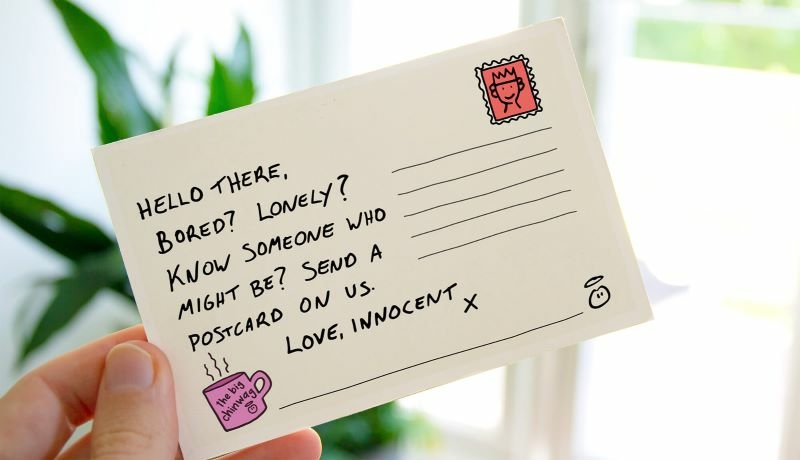 HELLO THERE,
BORED? LONELY?
KNOW SOMEONE WHO
MIGHT BE? SEND A
POSTCARD ON US.
LOVE, INNOCENT
X
the big
chinwag